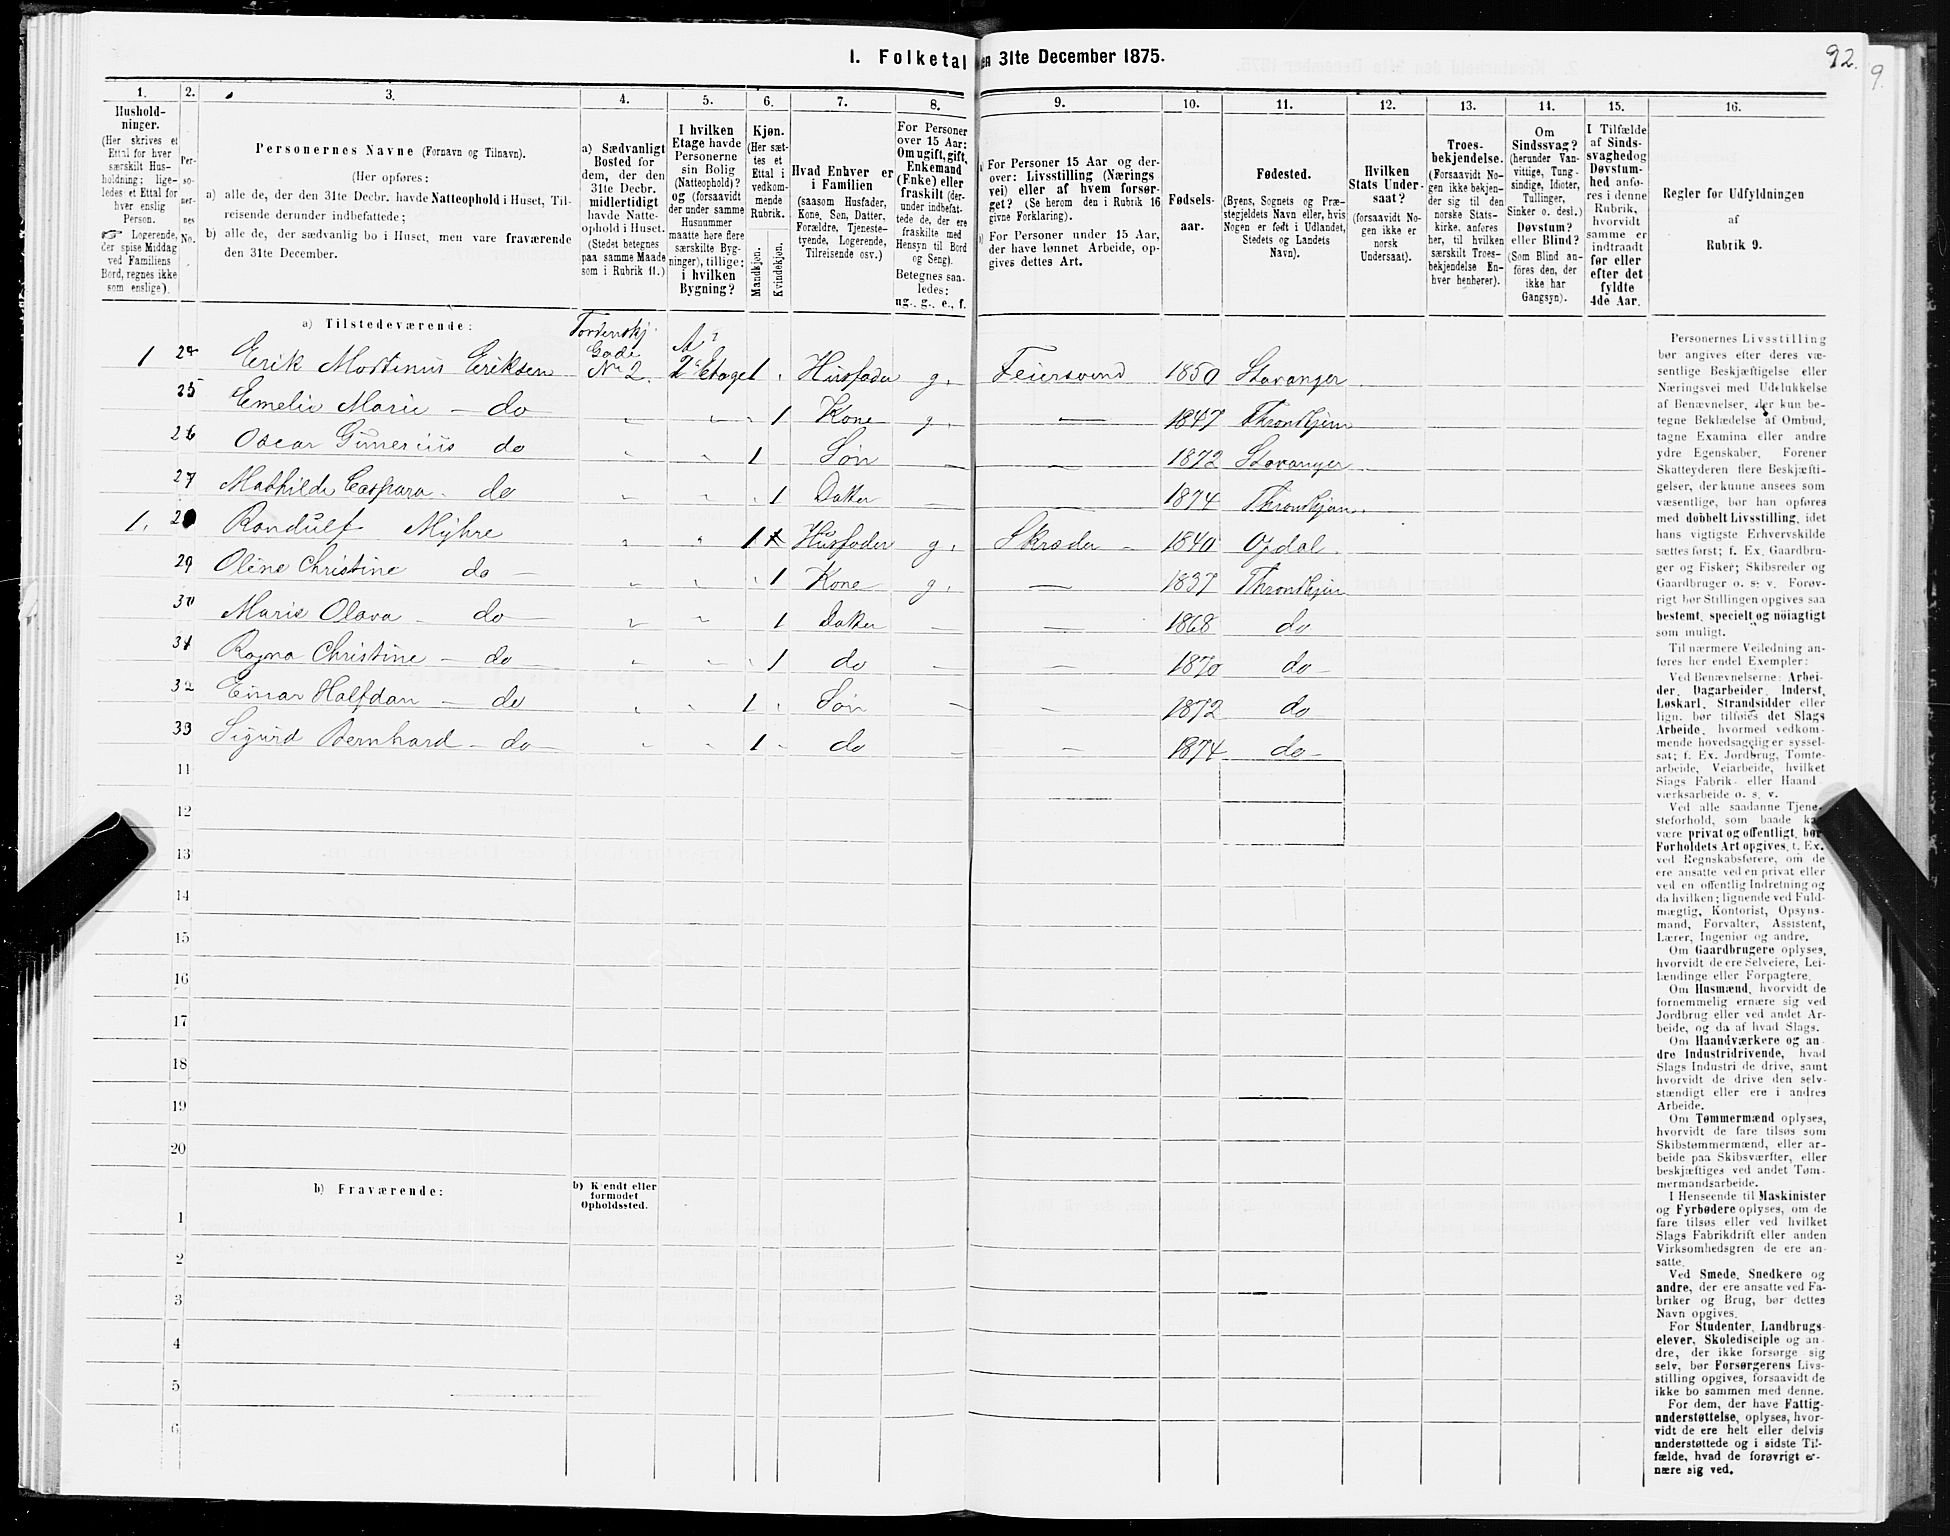 92.
9.
I. Folketal den 31te December 1875.
1. 2. 3. 4. 5. 6. 7. 8. 9. 10. 11. 12. 13. 14. 15. 16.
Hushold-
ninger.
(Her skrives et
Ettal for hver
særskilt Hus-
holdning; lige-
ledes et Ettal for
hver enslig
Person.
☞ Logerende,
der spise Middag
ved Familiens
Bord, regnes ikke
som enslige).
Per-
so-
ner-
nes
No.
Personernes Navne (Fornavn og Tilnavn).
(Her opføres:
a) alle de, der den 31te Decbr. havde Natteophold i Huset, Til-
reisende derunder indbefattede;
b) alle de, der sædvanlig bo i Huset, men vare fraværende
den 31te December.
a) Sædvanligt
Bosted for
dem, der den
31te Decbr.
midlertidigt
havde Natte-
ophold i Huset.
(Stedet betegnes
paa samme Maade
som i Rubrik 11.)
I hvilken
Etage havde
Personerne
sin Bolig
(Natteophold)?
og (forsaavidt
der under samme
Husnummer
maatte høre flere
særskilte Byg-
ninger), tillige:
i hvilken
Bygning?
Kjøn.
(Her sæt-
tes et
Ettal i
vedkom-
mende
Rubrik.
Mandkjøn.
Kvindekjøn.
Hvad Enhver er
i Familien
(saasom Husfader,
Kone, Søn, Datter,
Forældre, Tjeneste-
tyende, Logerende,
Tilreisende osv.)
For Personer
over 15 Aar:
Om ugift, gift,
Enkemand
(Enke) eller
fraskilt (der-
under indbefat-
tede de, der ere
fraskilte med
Hensyn til Bord
og Seng).
Betegnes saa-
ledes:
ug., g., e., f.
a) For Personer 15 Aar og der-
over: Livsstilling (Nærings
vei) eller af hvem forsør-
get? (Se herom den i Rubrik 16
givne Forklaring).
b) For Personer under 15 Aar,
der have lønnet Arbeide, op-
gives dettes Art.
Fødsels-
aar.
Fødested.
(Byens, Sognets og Præ-
stegjeldets Navn eller, hvis
Nogen er født i Udlandet,
Stedets og Landets
Navn).
Hvilken
Stats Under-
saat?
(forsaavidt No-
gen ikke er
norsk
Undersaat).
Troes-
bekjendelse.
(Forsaavidt No-
gen ikke bekjen-
der sig til den
norske Stats-
kirke, anføres
her, til hvilken
særskilt Troes-
bekjendelse En-
hver henhører).
Om
Sindssvag?
(herunder Van-
vittige, Tung-
sindige, Idioter,
Tullinger,
Sinker o. desl.)
Døvstum?
eller Blind?
(Som Blind an-
føres den, der
ikke har
Gangsyn).
I Tilfælde
af Sinds-
svaghed og
Døvstum-
hed anfø-
res i denne
Rubrik,
hvorvidt
samme er
indtraadt
før eller
efter det
fyldte
4de Aar.
Regler for Udfyldningen
af
Rubrik 9.
a) Tilstedeværende:
Tordenskj.
Gade
No 2.
1 24 Erik Mortinus Eriksen 2 Etage 1 Husfader g. Feiersvend 1850 Stavanger
25 Emelie Marie – do – 1 Kone g. – 1847 Throndhjem
26 Oscar Gunerius do 1 Søn – – 1872 Stavanger
27 Mathilde Caspara – do 1 Datter – – 1874 Throndhjem
1. 28 Randulf Myhre 1 Husfader g. Skræder – 1840 Opdal
29 Oline Christine do – 1 Kone g. – 1837 Throndhjem
30 Marie Olava – do – 1 Datter – – 1868 do
31 Ragna Christine – do – 1 do – – 1870 do –
32 Einar Halfdan – do 1 Søn – – 1872 do
33 Sigurd Bernhard – do – 1 do – – 1874 do –
11
12
13
14
15
16
17
18
19
20
b) Fraværende:
b) Kjendt eller
formodet
Opholdssted.
1
2
3
4
5
6
Personernes Livsstilling
bør angives efter deres væ-
sentlige Beskjæftigelse eller
Næringsvei med Udelukkelse
af Benævnelser, der kun be-
tegne Beklædelse af Ombud,
tagne Examina eller andre
ydre Egenskaber. Forener
Skatteyderen flere Beskjæfti-
gelser, der kunne ansees som
væsentlige, bør han opføres
med dobbelt Livsstilling, idet
hans vigtigste Erhvervskilde
sættes først; f. Ex. Gaardbru-
ger og Fisker; Skibsreder og
Gaardbruger o. s. v. Forøv-
rigt bør Stillingen opgives saa
bestemt, specielt og nøiagtigt
som muligt.
Til nærmere Veiledning an-
føres her endel Exempler:
Ved Benævnelserne: Arbei-
der, Dagarbeider, Inderst,
Løskarl, Strandsidder eller
lign. bør tilføies det Slags
Arbeide, hvormed vedkom-
mende hovedsagelig er syssel-
sat; f. Ex. Jordbrug, Tomte-
arbeide, Veiarbeide, hvilket
Slags Fabrik- eller Haand-
værksarbeide o. s. v.
Ved alle saadanne Tjene-
steforhold, som baade kan
være privat og offentligt, bør
Forholdets Art opgives, f. Ex.
ved Regnskabsførere, om de
ere ansatte ved en privat eller
ved en offentlig Indretning og
da hvilken; lignende ved Fuld-
mægtig, Kontorist, Opsyns-
mand, Forvalter, Assistent,
Lærer, Ingeniør og andre.
Om Gaardbrugere oplyses,
hvorvidt de ere Selveiere, Lei-
lændinge eller Forpagtere.
Om Husmænd, hvorvidt de
fornemmelig ernære sig ved
Jordbrug eller ved andet Ar-
beide, og da af hvad Slags.
Om Haandværkere og an-
dre Industridrivende, hvad
Slags Industri de drive, samt
hvorvidt de drive den selv-
stændigt eller ere i andres
Arbeide.
Om Tømmermænd oplyses,
hvorvidt de fare tilsøs som
Skibstømmermænd, eller ar-
beide paa Skibsværfter, eller
beskjæftiges ved andet Tøm-
mermandsarbeide.
I Henseende til Maskinister
og Fyrbødere oplyses, om de
fare tilsøs eller ved hvilket
Slags Fabrikdrift eller anden
Virksomhedsgren de ere an-
satte.
Ved Smede, Snedkere og
andre, der ere ansatte ved Fa-
briker og Brug, bør dettes
Navn opgives.
For Studenter, Landbrugs-
elever, Skoledisciple og an-
dre, der ikke forsørge sig
selv, bør Forsørgerens Livs-
stilling opgives, forsaavidt de
ikke bo sammen med denne.
For dem, der have Fattig-
understøttelse, oplyses, hvor-
vidt de ere helt eller delvis
understøttede og i sidste Til-
fælde, hvad de forøvrigt er-
nære sig ved.